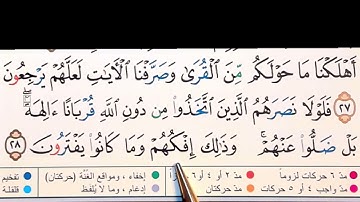 أَهْلَكْنَا مَا حَوْلَكُم مِّنَ ٱلْقُرَىٰ وَصَرَّفْنَا ٱلْـَٔايَـٰتِ لَعَلَّهُمْ يَرْجِعُونَ
٢٧ فَلَوْلَا نَصَرَهُمُ ٱلَّذِينَ ٱتَّخَذُوا۟ مِن دُونِ ٱللَّهِ قُرْبَانًا ءَالِهَةَۢ
بَلْ ضَلُّوا۟ عَنْهُمْ ۚ وَذَٰلِكَ إِفْكُهُمْ وَمَا كَانُوا۟ يَفْتَرُونَ ٢٨
مدّ ٦ حركات لزوماً مدّ ٢ أو ٤ أو ٦ إخفاء، ومواقع الغُنَّة (حركتان) تفخيم
مدّ واجب ٤ أو ٥ حركات مدّ حركتان إدغام، وما لا يُلفَظ قلقلة